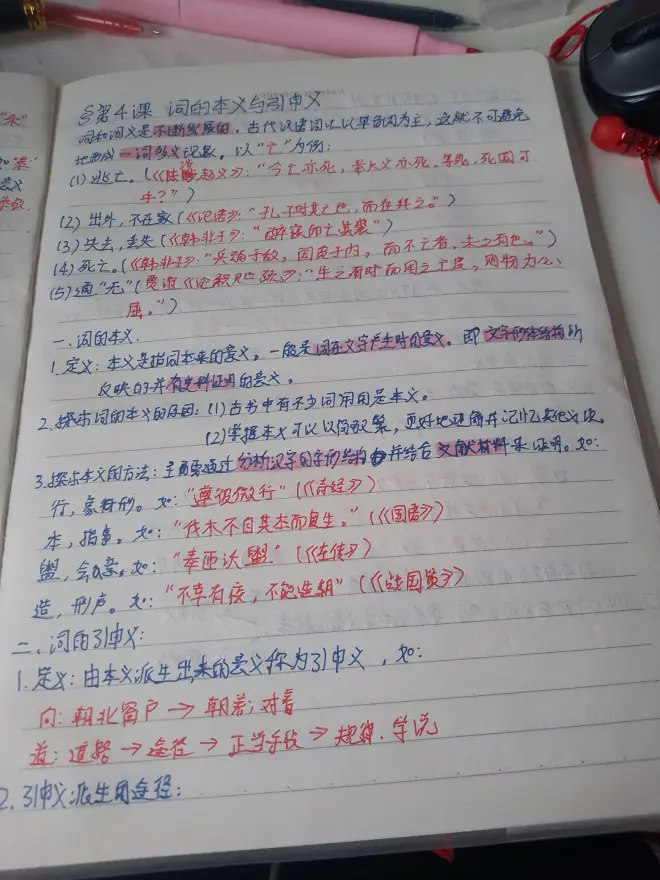 §第4课 词的本义与引申义
词和词义是不断发展的，古代汉语词汇以单音词为主，这就不可避免
地形成一词多义现象。以"亡"为例：
(1) 逃亡。(《陈涉起义》："今亡亦死，举大义亦死，等死，死国可
乎？")
(2) 出外，不在家(《论语》："孔子时其亡也，而往拜之。")
(3) 失去，丢失(《韩非子》："醉寐而亡其裘")
(4) 死亡。(《韩非子》："兵弱于敌，国贫于内，而不亡者，未之有也。")
(5) 通"无"(贾谊《论积贮疏》："生之有时而用之亡度，则物力必
屈。")
一、词的本义.
1. 定义：本义是指词本来的意义。一般是词在文字产生时的意义。即文字形体结构所
反映的并有史料证明的意义。
2. 探求词的本义的原因：(1) 古书中有不少词用的是本义。
(2) 掌握本义可以以简驭繁，更好地理解并记忆其他义项。
3. 探求本义的方法：主要通过分析汉字的字形结构并结合文献材料来证明。如：
行，象形。如："遵彼微行"(《诗经》)
本，指事。如："伐木不自其本而复生。"(《国语》)
盟，会意。如："奉匜沃盟"(《左传》)
造，形声。如："不幸有疾，不能造朝"(《战国策》)
二、词的引申义：
1. 定义：由本义派生出来的意义称为引申义，如：
向：朝北窗户→朝着；对着
道：道路→途径→正当手段→规律．学说
2. 引申义派生的途径：